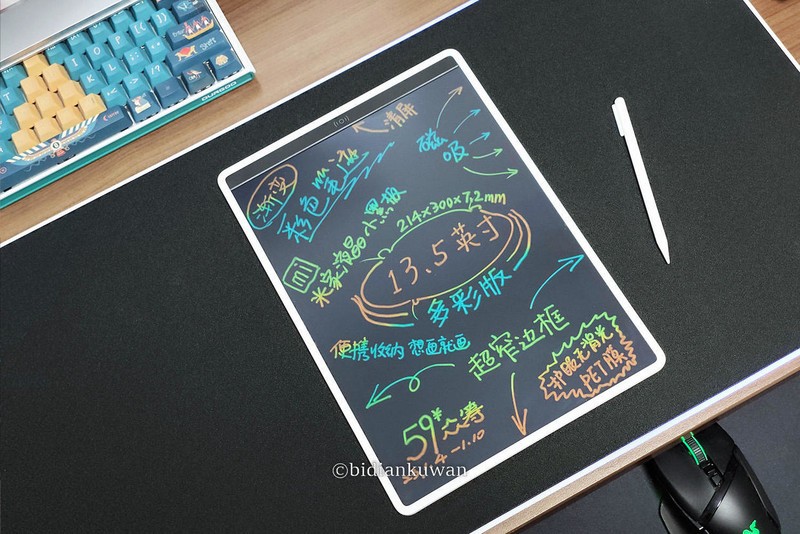 清屏
渐变
彩色笔迹
磁吸
mi
米家液晶小黑板
214×300×7,2mm
13.5英寸
多彩版
便携收纳 想画就画
超窄边框
护眼无背光
PET膜
59¥众筹
©bidiankuwan
Shift